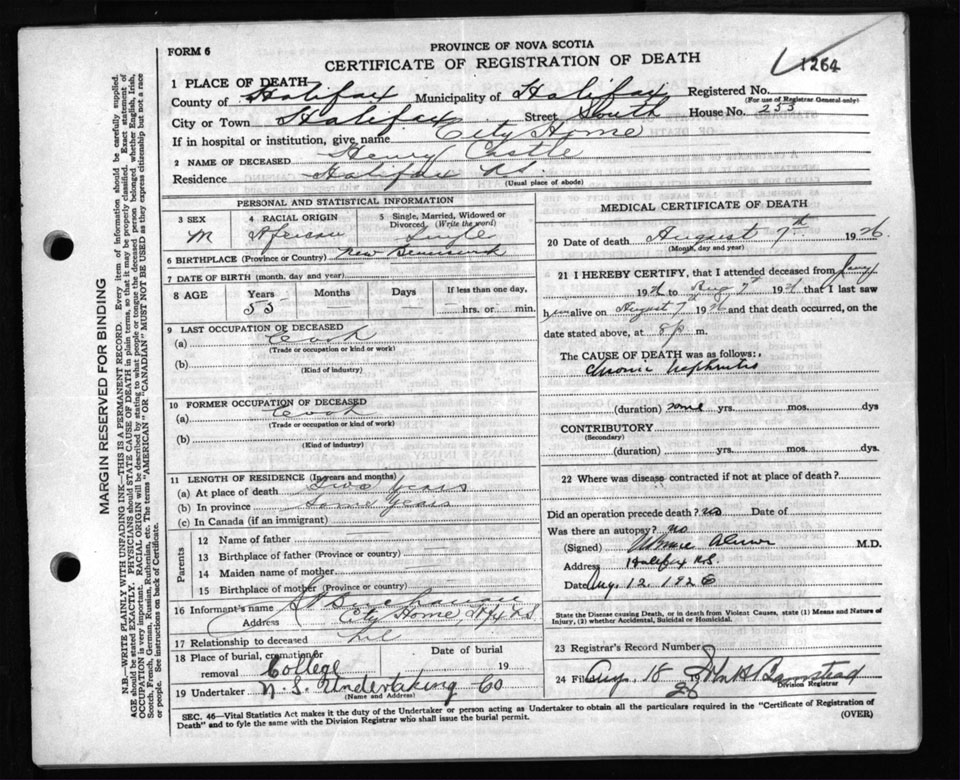 FORM 6
PROVINCE OF NOVA SCOTIA
CERTIFICATE OF REGISTRATION OF DEATH
1264
1 PLACE OF DEATH
County of Halifax Municipality of Halifax Registered No.
(For use of Registrar General only)
City or Town Halifax Street South House No. 253
If in hospital or institution, give name City Home
2 NAME OF DECEASED Henry Castle
Residence Halifax N.S.
(Usual place of abode)
PERSONAL AND STATISTICAL INFORMATION
3 SEX 4 RACIAL ORIGIN 5 Single, Married, Widowed or Divorced (Write the word)
M African Single
6 BIRTHPLACE (Province or Country) New Brunswick
7 DATE OF BIRTH (month, day and year)
8 AGE Years Months Days If less than one day,
55 hrs. or min.
9 LAST OCCUPATION OF DECEASED
(a) Cook
(Trade or occupation or kind of work)
(b)
(Kind of industry)
10 FORMER OCCUPATION OF DECEASED
(a) Cook
(Trade or occupation or kind of work)
(b)
(Kind of industry)
11 LENGTH OF RESIDENCE (In years and months)
(a) At place of death two years
(b) In province Some years
(c) In Canada (if an immigrant)
Parents
12 Name of father
13 Birthplace of father (Province or country)
14 Maiden name of mother
15 Birthplace of mother (Province or country)
16 Informant's name Buchanan
Address City Home, Hfx N.S.
17 Relationship to deceased nil
18 Place of burial, cremation or removal College Date of burial 19
19 Undertaker N. S. Undertaking Co
(Name and Address)
MEDICAL CERTIFICATE OF DEATH
20 Date of death August 7th 1926
(Month, day and year)
21 I HEREBY CERTIFY, that I attended deceased from
1926 to Aug 7th 1926 that I last saw
him alive on August 7 1926 and that death occurred, on the
date stated above, at 8 p m.
The CAUSE OF DEATH was as follows:
Chronic Nephritis
(duration) some yrs. mos. dys
CONTRIBUTORY
(Secondary)
(duration) yrs. mos. dys
22 Where was disease contracted if not at place of death?
Did an operation precede death? no Date of
Was there an autopsy? no
(Signed) M.D.
Address Halifax N.S.
Date Aug. 12. 1926
State the Disease causing Death, or in death from Violent Causes, state (1) Means and Nature of
Injury, (2) whether Accidental, Suicidal or Homicidal.
23 Registrar's Record Number
24 Filed Aug. 18 1926
Division Registrar
SEC. 46—Vital Statistics Act makes it the duty of the Undertaker or person acting as Undertaker to obtain all the particulars required in the "Certificate of Registration of
Death" and to fyle the same with the Division Registrar who shall issue the burial permit.
(OVER)
MARGIN RESERVED FOR BINDING
N.B.—WRITE PLAINLY WITH UNFADING INK—THIS IS A PERMANENT RECORD. Every item of information should be carefully supplied.
AGE should be stated EXACTLY. PHYSICIANS should STATE CAUSE OF DEATH in plain terms, so that it may be properly classified. Exact statement of
OCCUPATION is very important. RACIAL ORIGIN will be described by stating to what people or tongue the deceased person belonged whether English, Irish,
Scotch, French, German, Russian, Ruthenian, etc. The terms "AMERICAN" OR "CANADIAN" MUST NOT BE USED as they express citizenship but not a race
or people. See instructions on back of Certificate.